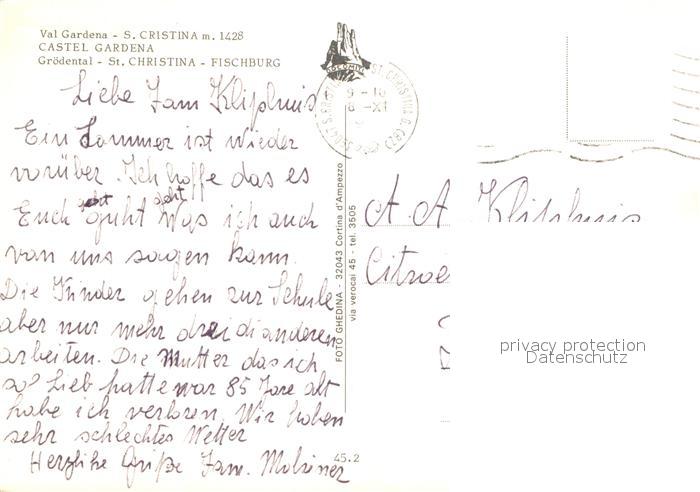 Val Gardena - S. CRISTINA m. 1428
CASTEL GARDENA
Grödental - St. CHRISTINA - FISCHBURG
Liebe Fam Kliphuis
Ein Sommer ist wieder
vorüber. Ich hoffe das es
Euch guht geht was ich auch
van uns sagen kann.
Die Kinder gehen zur Schule
aber nur mehr drei di anderen
arbeiten. Die Mutter das ich
so Lieb hatte war 85 Jare alt
habe ich verloren. Wir haben
sehr schlechtes Wetter
Herzlihe Grüße Fam.
45.2
FOTO GHEDINA - 32043 Cortina d'Ampezzo
via verocai 45 - tel. 3505
DOLOMITI
9 - 18
8 -XI
A. A. Kliphuis
Citroe
privacy protection
Datenschutz